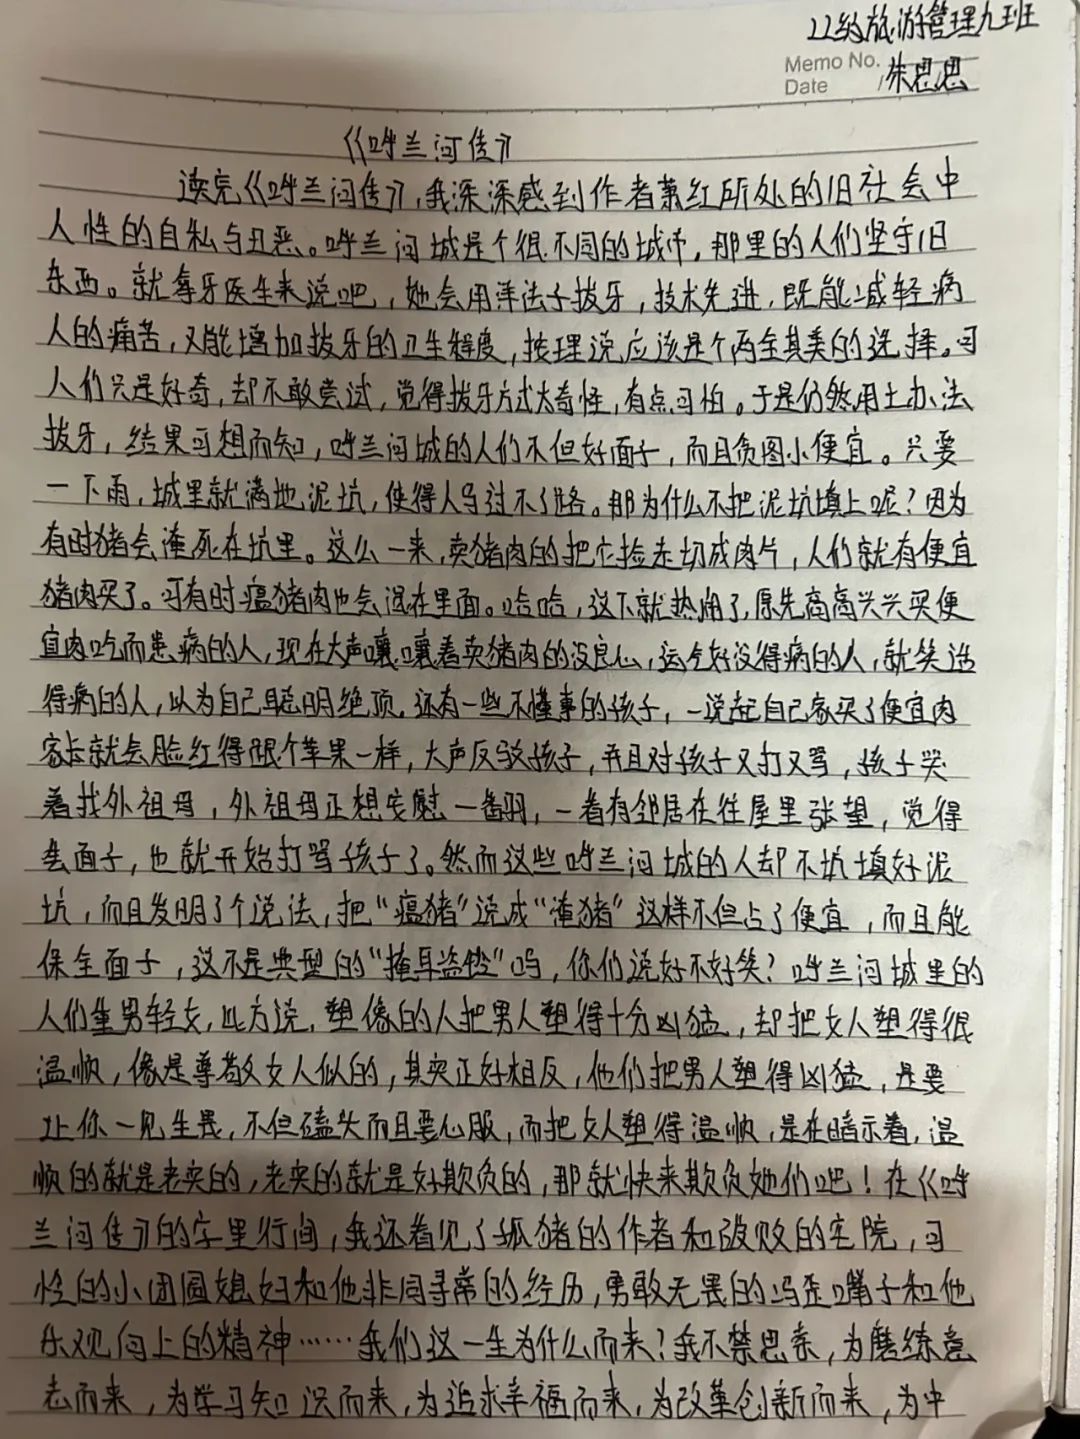 22级旅游管理九班
Memo No.
Date / 朱思思
《呼兰河传》
读完《呼兰河传》,我深深感到作者萧红所处的旧社会中
人性的自私与丑恶。呼兰河城是个很不同的城市,那里的人们坚守旧
东西。就拿牙医生来说吧,她会用洋法子拔牙,技术先进,既能减轻病
人的痛苦,又能增加拔牙的卫生程度,按理说应该是个两全其美的选择。可
人们只是好奇,却不敢尝试,觉得拔牙方式太奇怪,有点可怕。于是仍然用土办法
拔牙,结果可想而知,呼兰河城的人们不但好面子,而且贪图小便宜。只要
一下雨,城里就满地泥坑,使得人马过不了路。那为什么不把泥坑填上呢?因为
有时猪会淹死在坑里。这么一来,卖猪肉的把它捡走切成肉片,人们就有便宜
猪肉买了。可有时瘟猪肉也会混在里面。哈哈,这下就热闹了,原先高高兴兴买便
宜肉吃而患病的人,现在大声嚷嚷着卖猪肉的没良心,运气好没得病的人,就笑话
得病的人,以为自己聪明绝顶,还有一些不懂事的孩子,一说起自己家买了便宜肉
家长就会脸红得跟个苹果一样,大声反驳孩子,并且对孩子又打又骂,孩子哭
着找外祖母,外祖母正想安慰一番,一看有邻居在往屋里张望,觉得
丢面子,也就开始打骂孩子了。然而这些呼兰河城的人却不坑填好泥
坑,而且发明了个说法,把“瘟猪”说成“淹猪”这样不但占了便宜,而且能
保全面子,这不是典型的“掩耳盗铃”吗,你们说好不好笑?呼兰河城里的
人们重男轻女,比方说,塑像的人把男人塑得十分凶猛,却把女人塑得很
温顺,像是尊敬女人似的,其实正好相反,他们把男人塑得凶猛,是要
让你一见生畏,不但磕头而且要心服,而把女人塑得温顺,是在暗示着,温
顺的就是老实的,老实的就是好欺负的,那就快来欺负她们吧!在《呼
兰河传》的字里行间,我还看见了孤独的作者和破败的宅院,可
怜的小团圆媳妇和他非同寻常的经历,勇敢无畏的冯歪嘴子和他
乐观向上的精神……我们这一生为什么而来?我不禁思索,为磨练意
志而来,为学习知识而来,为追求幸福而来,为改革创新而来,为中